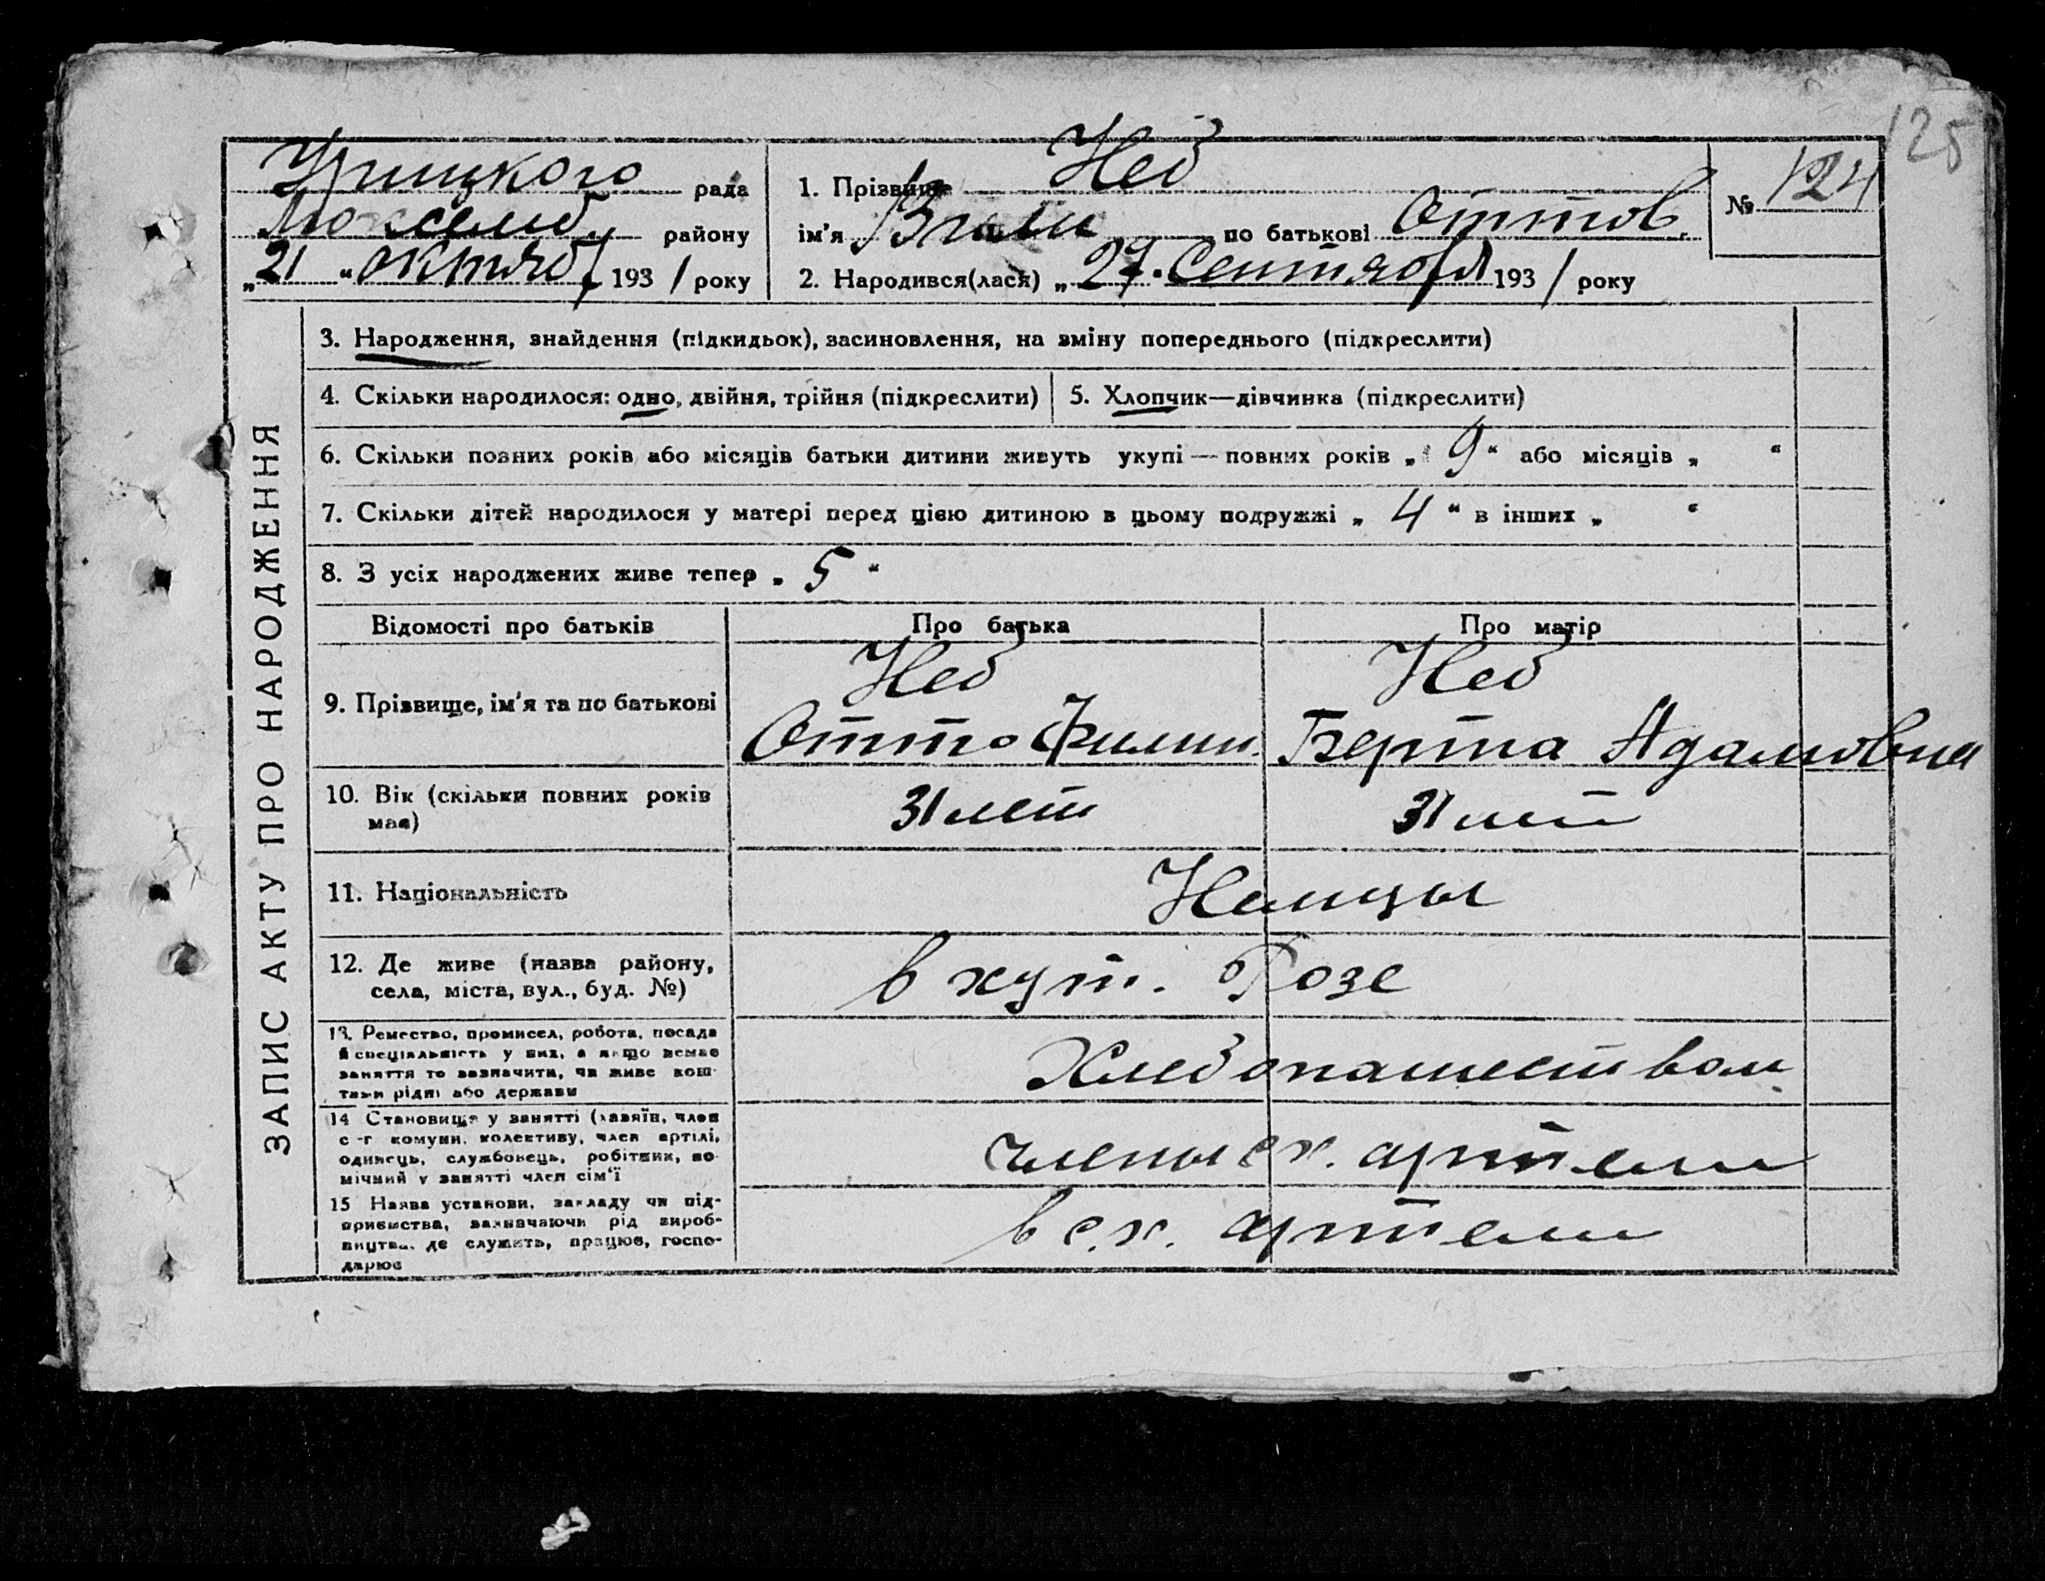 125
Урицкого рада
Люксемб. району
„21“ октяб 1931 року
1. Прізвище Неб
ім'я по батькові Оттов.
2. Народився(лася) „27“ Сентября 1931 року
№ 124
ЗАПИС АКТУ ПРО НАРОДЖЕННЯ
3. Народження, знайдення (підкидьок), засиновлення, на зміну попереднього (підкреслити)
4. Скільки народилося: одно, двійня, трійня (підкреслити)
5. Хлопчик—дівчинка (підкреслити)
6. Скільки повних років або місяців батьки дитини живуть укупі — повних років „9“ або місяців „ “
7. Скільки дітей народилося у матері перед цією дитиною в цьому подружжі „4“ в інших „ “
8. З усіх народжених живе тепер „5“
Відомості про батьків Про батька Про матір
9. Прізвище, ім'я та по батькові
Неб
Отто Филип.
Неб
Берта Адамовна
10. Вік (скільки повних років
має)
31 лет
31 лет
11. Національність
Немцы
12. Де живе (назва району,
села, міста, вул., буд. №)
в хут. Розе
13. Ремество, промисел, робота, посада
й спеціяльність у них, а якщо немає
заняття то зазначити, чи живе кош-
тами рідні або держави
Хлебопашеством
14 Становище у занятті (хазяїн, член
с-г комуни, колективу, член артілі,
одинець, службовець, робітник, по-
мічний у занятті член сім'ї
члены с.х. артели
15 Назва установи, закладу чи під-
приємства, зазначаючи рід вироб-
ництва, де служить, працює, госпо-
дарює
в с.х. артели